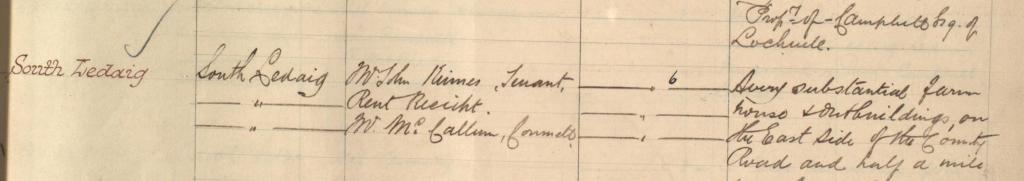 Propy. of - Campbell Esq. of
Lochnell.
South Ledaig South Ledaig Mr John Kinnes, Tenant, " 6 A very substantial farm
" Rent Receipt " house & outbuildings, on
" Mr. McCallum, Connell " the East side of the County
Road and half a mile